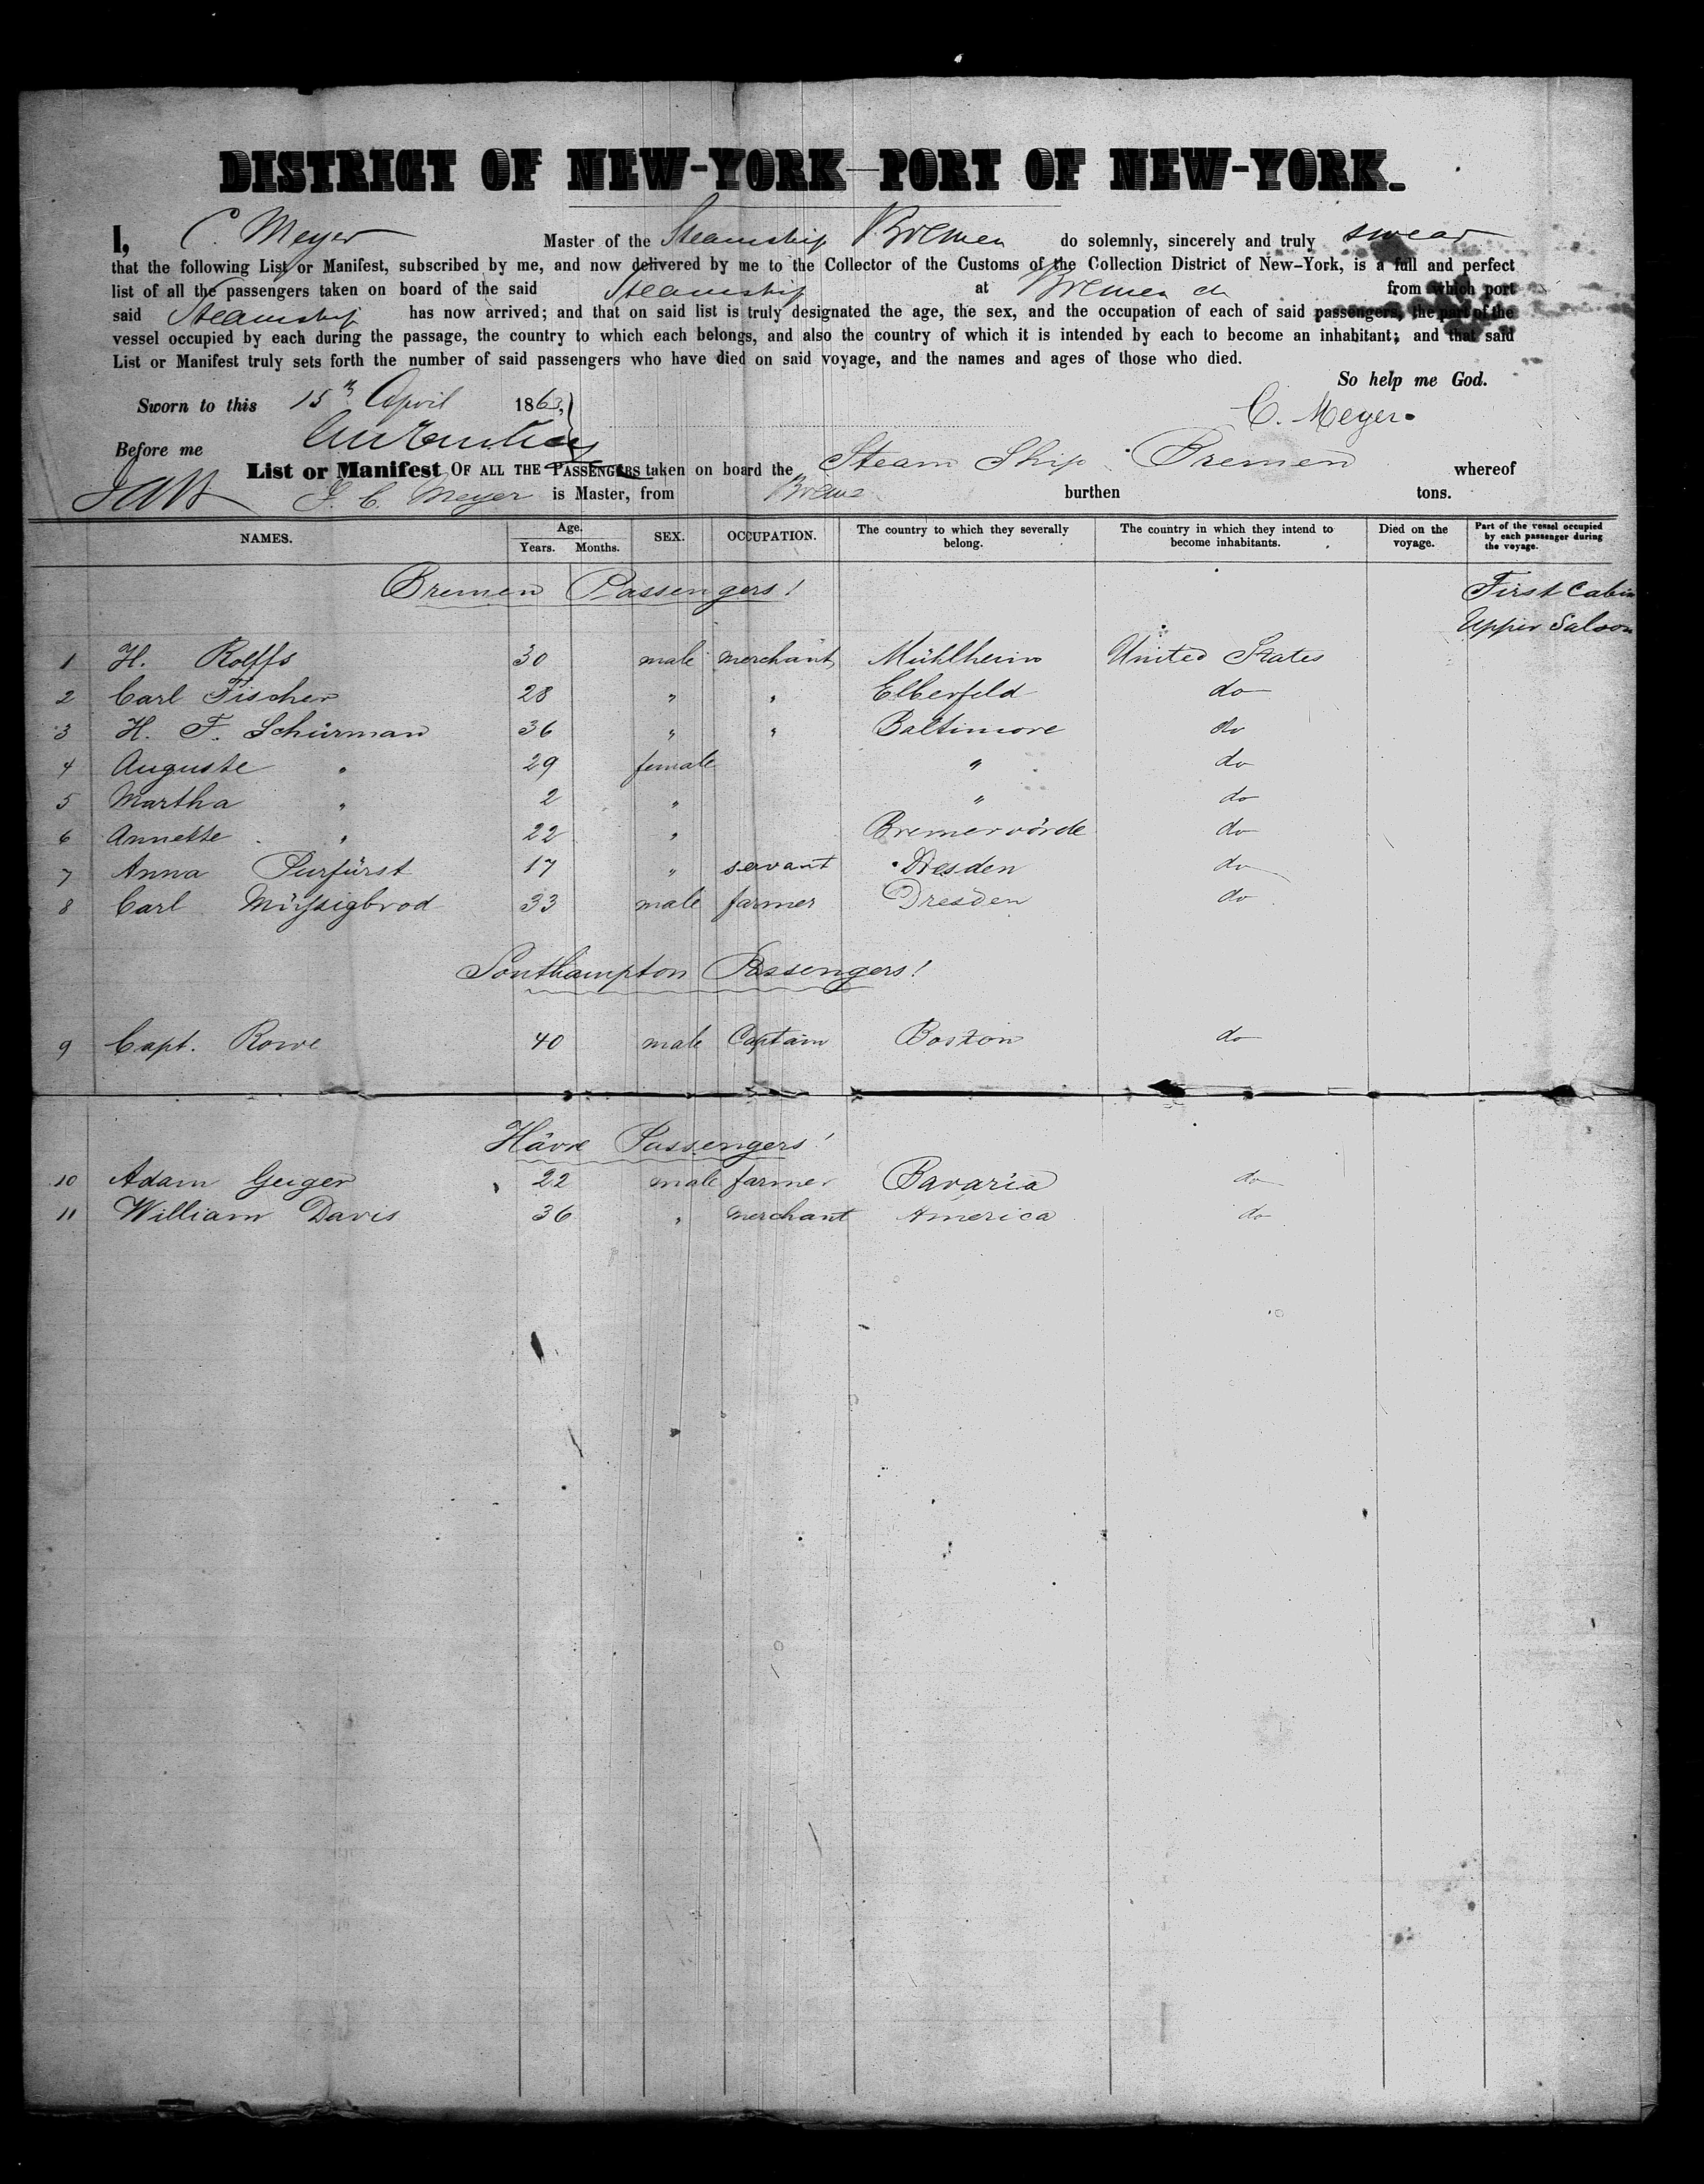 DISTRICT OF NEW-YORK—PORT OF NEW-YORK.
I, C. Meyer Master of the Steamship Bremen do solemnly, sincerely and truly swear
that the following List or Manifest, subscribed by me, and now delivered by me to the Collector of the Customs of the Collection District of New-York, is a full and perfect
list of all the passengers taken on board of the said Steamship at Bremen from which port
said Steamship has now arrived; and that on said list is truly designated the age, the sex, and the occupation of each of said passengers, the part of the
vessel occupied by each during the passage, the country to which each belongs, and also the country of which it is intended by each to become an inhabitant; and that said
List or Manifest truly sets forth the number of said passengers who have died on said voyage, and the names and ages of those who died.
So help me God.
Sworn to this 15th April 1863,
C. Meyer.
Before me
List or Manifest OF ALL THE PASSENGERS taken on board the Steam Ship Bremen whereof
C. Meyer is Master, from burthen tons.
NAMES. Age. Years. Months. SEX. OCCUPATION. The country to which they severally belong. The country in which they intend to become inhabitants. Died on the voyage. Part of the vessel occupied by each passenger during the voyage.
Bremen Passengers! First Cabin
Upper Saloon
1 H. Rolffs 30 male merchant Mühlheim United States
2 Carl Fischer 28 " " Elberfeld do
3 H. F. Schürman 36 " " Baltimore do
4 Auguste " 29 female " do
5 Martha " 2 " " do
6 Annette " 22 " Bremervörde do
7 Anna Purfürst 17 " servant Dresden do
8 Carl Müssigbrod 33 male farmer Dresden do
Southampton Passengers!
9 Capt. Rowe 40 male Captain Boston do
Hâvre Passengers!
10 Adam Geiger 22 male farmer Bavaria do
11 William Davis 36 " merchant America do